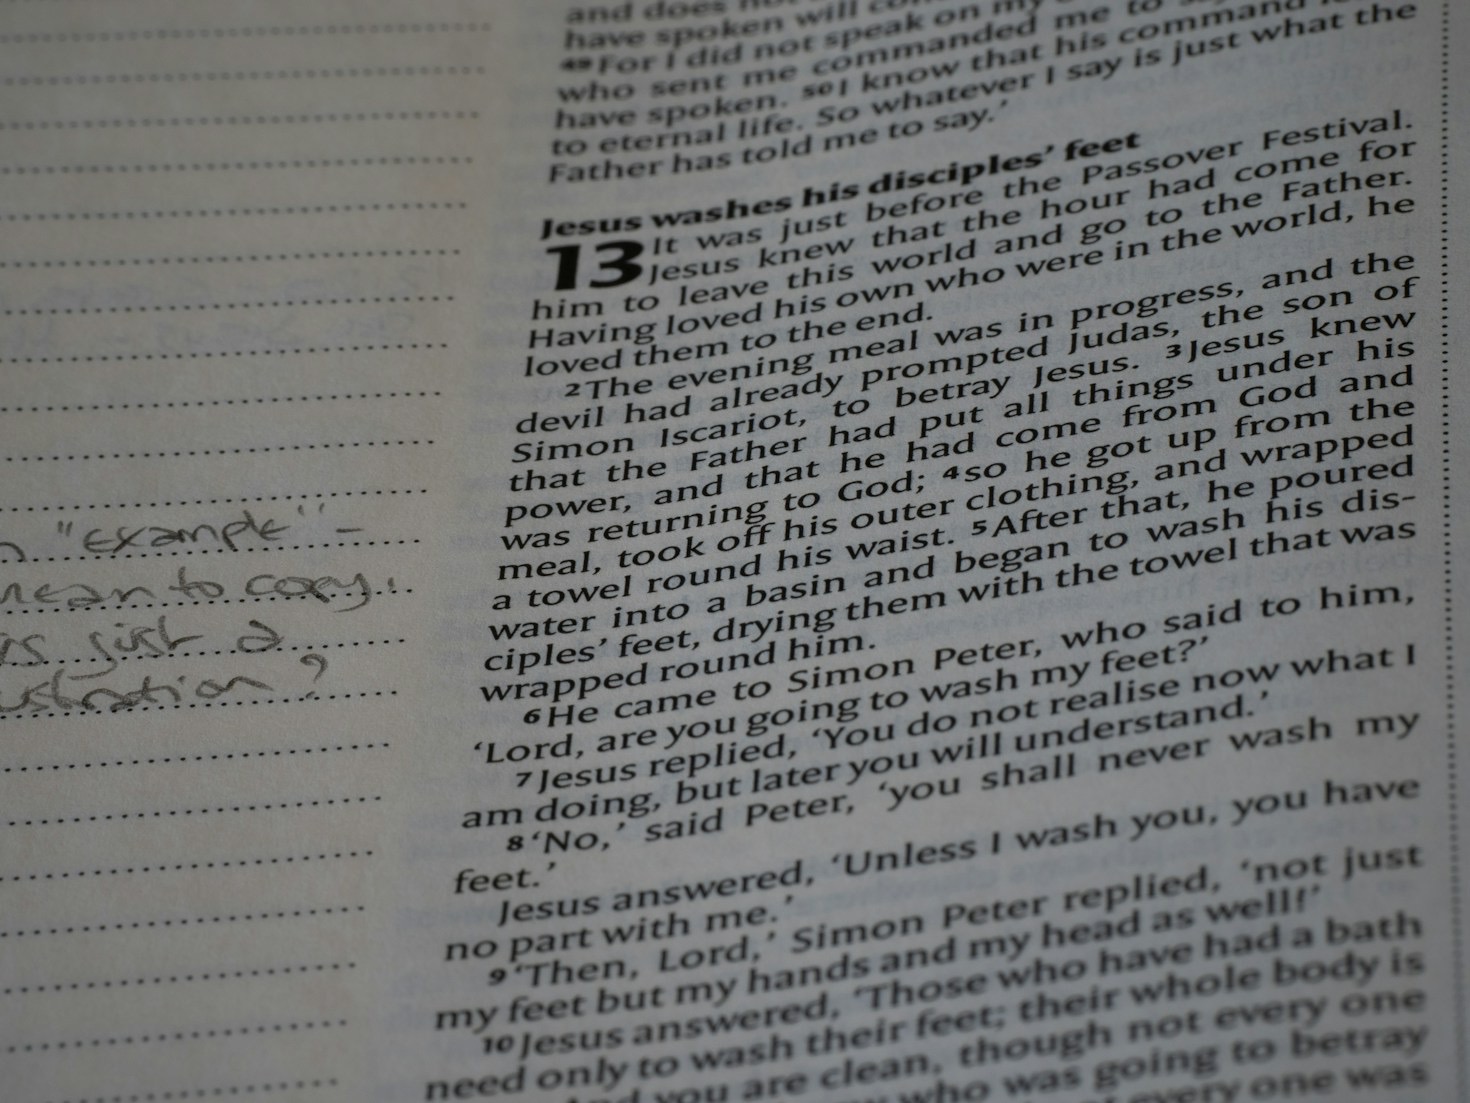 "example" –
mean to copy.
as just a
?
and does
have spoken will
49 For I did not speak on my
who sent me commanded me to
have spoken. 50 I know that his command
to eternal life. So whatever I say is just what the
Father has told me to say.'
Jesus washes his disciples' feet
13 It was just before the Passover Festival.
Jesus knew that the hour had come for
him to leave this world and go to the Father.
Having loved his own who were in the world, he
loved them to the end.
2 The evening meal was in progress, and the
devil had already prompted Judas, the son of
Simon Iscariot, to betray Jesus. 3 Jesus knew
that the Father had put all things under his
power, and that he had come from God and
was returning to God; 4 so he got up from the
meal, took off his outer clothing, and wrapped
a towel round his waist. 5 After that, he poured
water into a basin and began to wash his dis-
ciples' feet, drying them with the towel that was
wrapped round him.
6 He came to Simon Peter, who said to him,
'Lord, are you going to wash my feet?'
7 Jesus replied, 'You do not realise now what I
am doing, but later you will understand.'
8 'No,' said Peter, 'you shall never wash my
feet.'
Jesus answered, 'Unless I wash you, you have
no part with me.'
9 'Then, Lord,' Simon Peter replied, 'not just
my feet but my hands and my head as well!'
10 Jesus answered, 'Those who have had a bath
need only to wash their feet; their whole body is
And you are clean, though not every one
who was going to betray
every one was